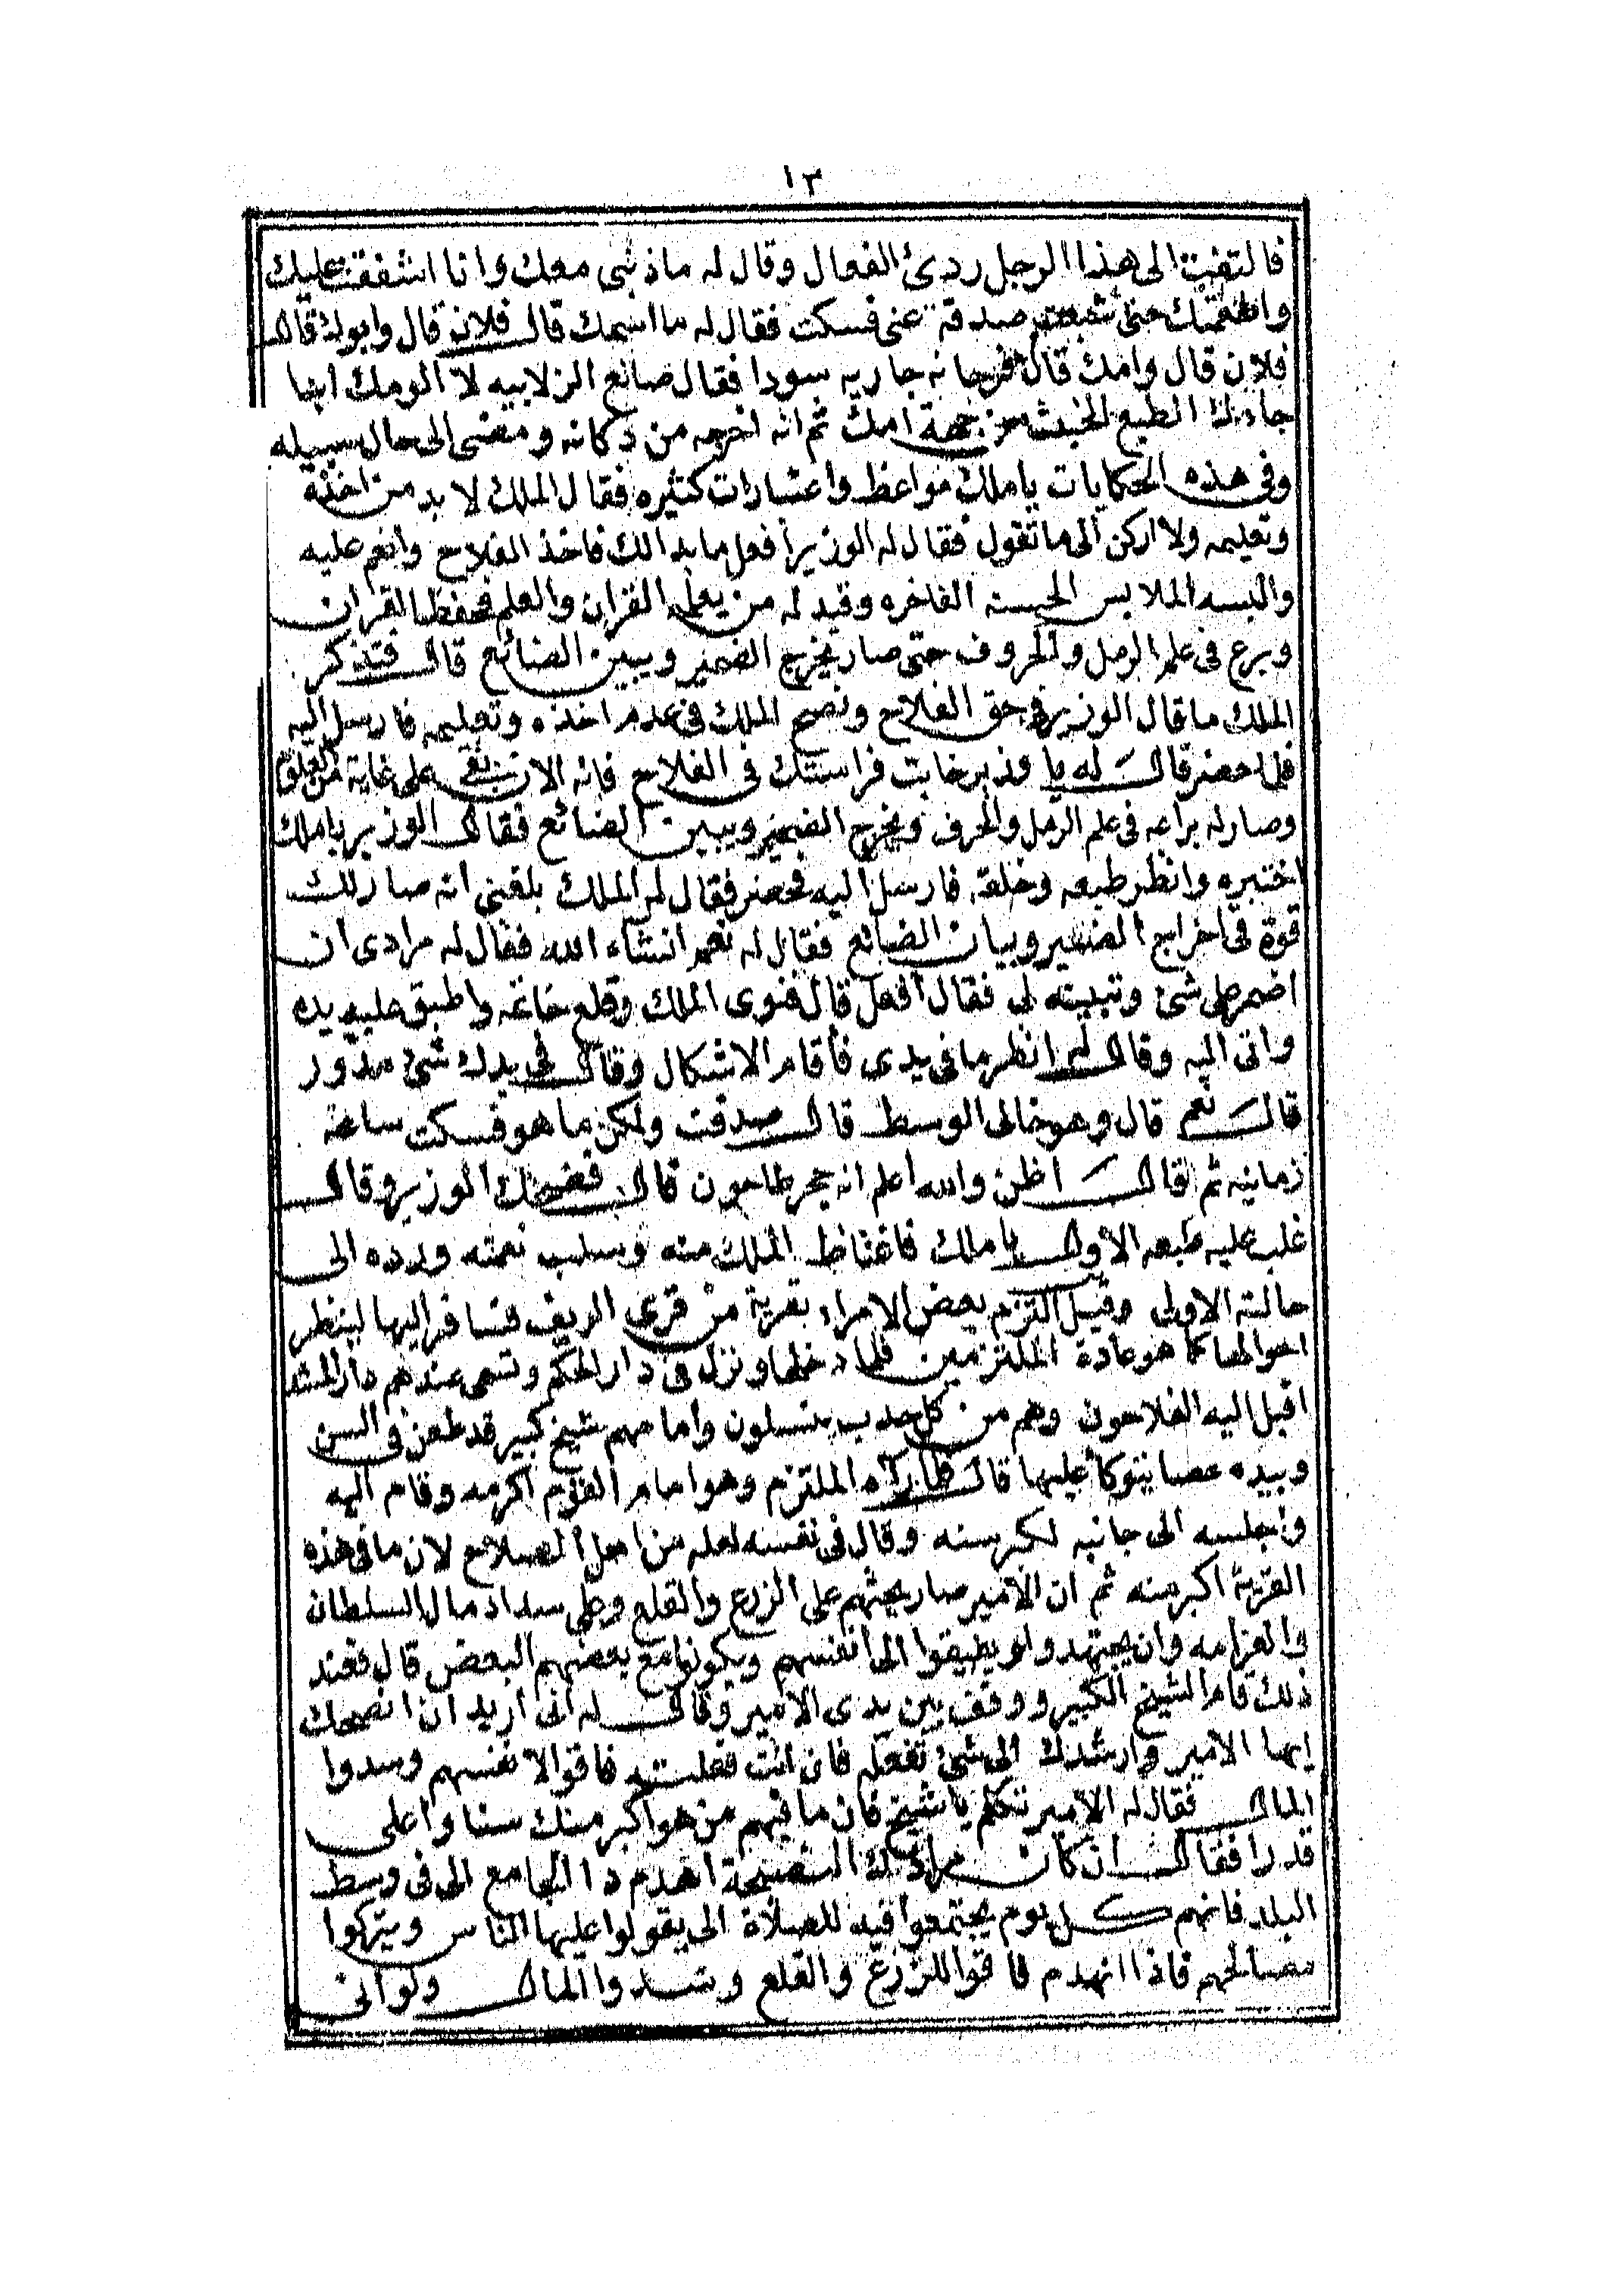 ١٣
فالتفت الى هذا الرجل ردئ الفعال وقال له ماذنبى معك وانا اشفقت عليك
واطعمتك حتى شبعت صدقة عنى فسكت فقال له ما اسمك قال فلان قال وابوك قال
فلان قال وامك قال مرجانه جاريه سودا فقال صانع الزلابيه لا الومك انما
جاءك الطبع الخبيث من جهة امك ثم انه اخرجه من دكانه ومضى الى حال سبيله
وفى هذه الحكايات ياملك مواعظ واعتبارات كثيره فقال الملك لا بد من اخذه
وتعليمه ولا اركن الى ما تقول فقال له الوزير افعل ما بدالك فاخذ الفلاح وانعم عليه
والبسه الملابس الحسنه الفاخره وقيد له من يعلمه القران والعلم فحفظ القران
وبرع فى علم الرمل والحروف حتى صار يخرج الضمير ويبين الضائع قال فتذكر
الملك ما قال الوزير فى حق الفلاح ونصح الملك فى عدم اخذه وتعليمه فارسل اليه
فلما حضر قال له يا وزير خابت فراستك فى الفلاح فانه الان بقى على غاية من العلوم
وصار له براعه فى علم الرمل والحرف ويخرج الضمير ويبين الضائع فقال الوزير ياملك
اختبره وانظر طبعه وخلقه فارسل اليه فحضر فقال له الملك بلغنى انه صار لك
قوة فى اخراج الضمير وبيان الضائع فقال له نعم انشاء الله فقال له مرادى ان
اضمر على شئ وتبينه لى فقال افعل قال فنوى الملك وقلع خاتمه واطبق عليه يده
واتى اليه وقال له انظر ما فى يدى فأقام الاشكال وقال فى يدك شئ مدور
قال نعم قال وهو خالى الوسط قال صدقت ولكن ما هو فسكت ساعة
زمانيه ثم قال اظن والله اعلم انه حجر طاحون قال فضحك الوزير وقال
غلب عليه طبعه الاول ياملك فاغتاظ الملك منه وسلب نعمته ورده الى
حالته الاولى وقيل التزم بعض الامراء بقرية من قرى الريف فسافر اليها لينظر
احوالها كما هو عادة الملتزمين فلما دخلها ونزل فى دار الحكم وتسمى عندهم دار المشد
اقبل اليه الفلاحون وهم من كل حدب ينسلون وامامهم شيخ كبير قد طعن فى السن
وبيده عصا يتوكأ عليها قال فلما راه الملتزم وهو امام القوم اكرمه وقام اليه
واجلسه الى جانبه لكبر سنه وقال فى نفسه لعله من اهل الصلاح لان ما فى هذه
القرية اكبر منه ثم ان الامير صار يحثهم على الزرع والقلع وعلى سداد مال السلطان
والغرامه وان يجتهدوا ويطيقوا الى انفسهم ويكونوا مع بعضهم البعض قال فعند
ذلك قام الشيخ الكبير ووقف بين يدى الامير وقال له انى اريد ان انصحك
ايها الامير وارشدك الى شئ تفعله فان انت فعلته فاقوا لانفسهم وسدوا
المال فقال له الامير تكلم ياشيخ فان ما فيهم من هو اكبر منك سنا واعلى
قدرا فقال ان كان مرادك النصيحة اهدم دا الجامع الى فى وسط
البلد فانهم كل يوم يجتمعوا فيه للصلاة الى يقولوا عليها الناس ويتركوا
مصالحهم فاذا انهدم فاقوا للزرع والقلع وشدوا المال ولو انى